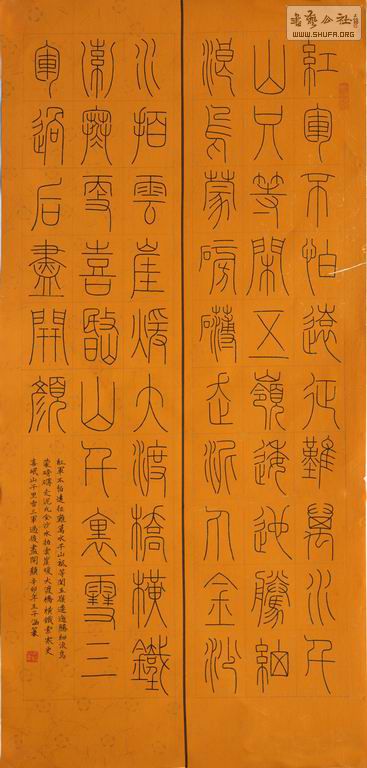 書藝公社
WWW.SHUFA.ORG
紅軍不怕遠征難萬水千
山只等閑五嶺逶迤騰細
浪烏蒙磅礴走泥丸金沙
水拍雲崖煖大渡橋橫鐵
索寒更喜岷山千裏雪三
軍過后盡開顏
紅軍不怕遠征難萬水千山祇等閑五嶺逶迤騰細浪烏
蒙磅礴走泥丸金沙水拍雲崖煖大渡橋橫鐵索寒更
喜岷山千里雪三軍過後盡開顏辛卯年王子涵篆